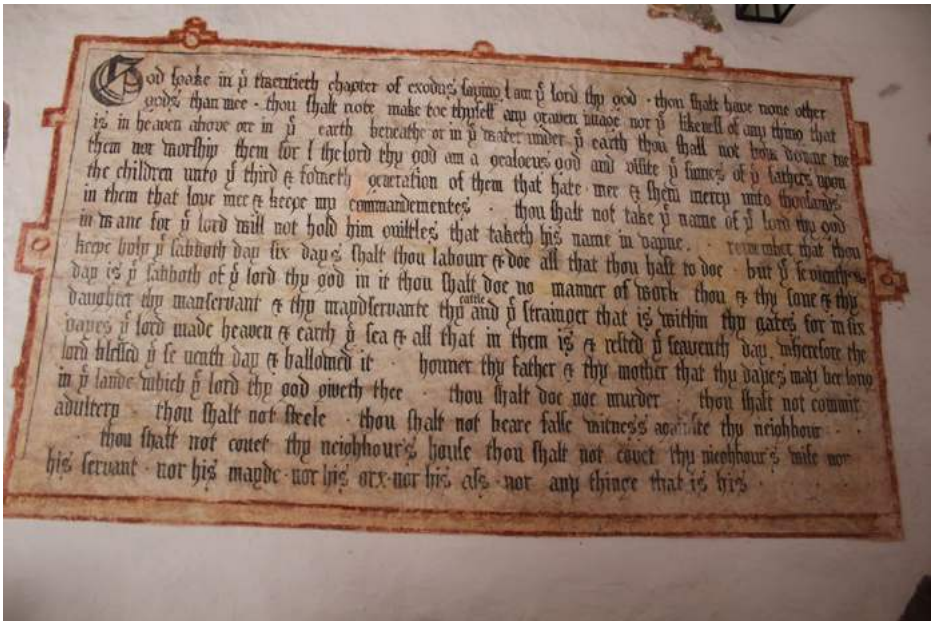 God spake in yͤ twentieth chapter of exodus saying I am yͤ lord thy god · thou shalt have none other
gods than mee · thou shalt note make toe thyself any graven image nor yͤ likeness of any thing that
is in heaven above ore in yͤ earth beneathe or in yͤ water under yͤ earth thou shall not bow downe toe
them nor worship them for I the lord thy god am a gealocus god and visite yͤ sinnes of yͤ fathers upon
the children unto yͤ third & fowrth generation of them that hate mee & shew mercy unto thousands
in them that love mee & keepe my commandementes · thou shalt not take yͤ name of yͤ lord thy god
in vane for yͤ lord will not hold him guiltles that taketh his name in vayne · remember that thou
keepe holy yͤ sabboth day six days shalt thou labourr & doe all that thou hast to doe · but yͤ seventh
day is yͤ sabboth of yͤ lord thy god in it thou shalt doe no manner of work thou & thy sone & thy
daughter thy manservant & thy maydservante thy cattle and yͤ strainger that is within thy gates for in six
dayes yͤ lord made heaven & earth yͤ sea & all that in them is & rested yͤ seaventh day wherefore the
lord blessed yͤ se uenth day & hallowed it · honner thy father & thy mother that thy dayes may bee long
in yͤ lande which yͤ lord thy god giveth thee · thou shalt doe noe murder · thou shalt not commit
adultery · thou shalt not steele · thou shalt not beare false witness againste thy neighbour ·
thou shalt not covet thy neighbour's house thou shalt not covet thy nieghbour's wife nor
his servant · nor his mayde · nor his orx · nor his ass · nor any thinge that is his ·